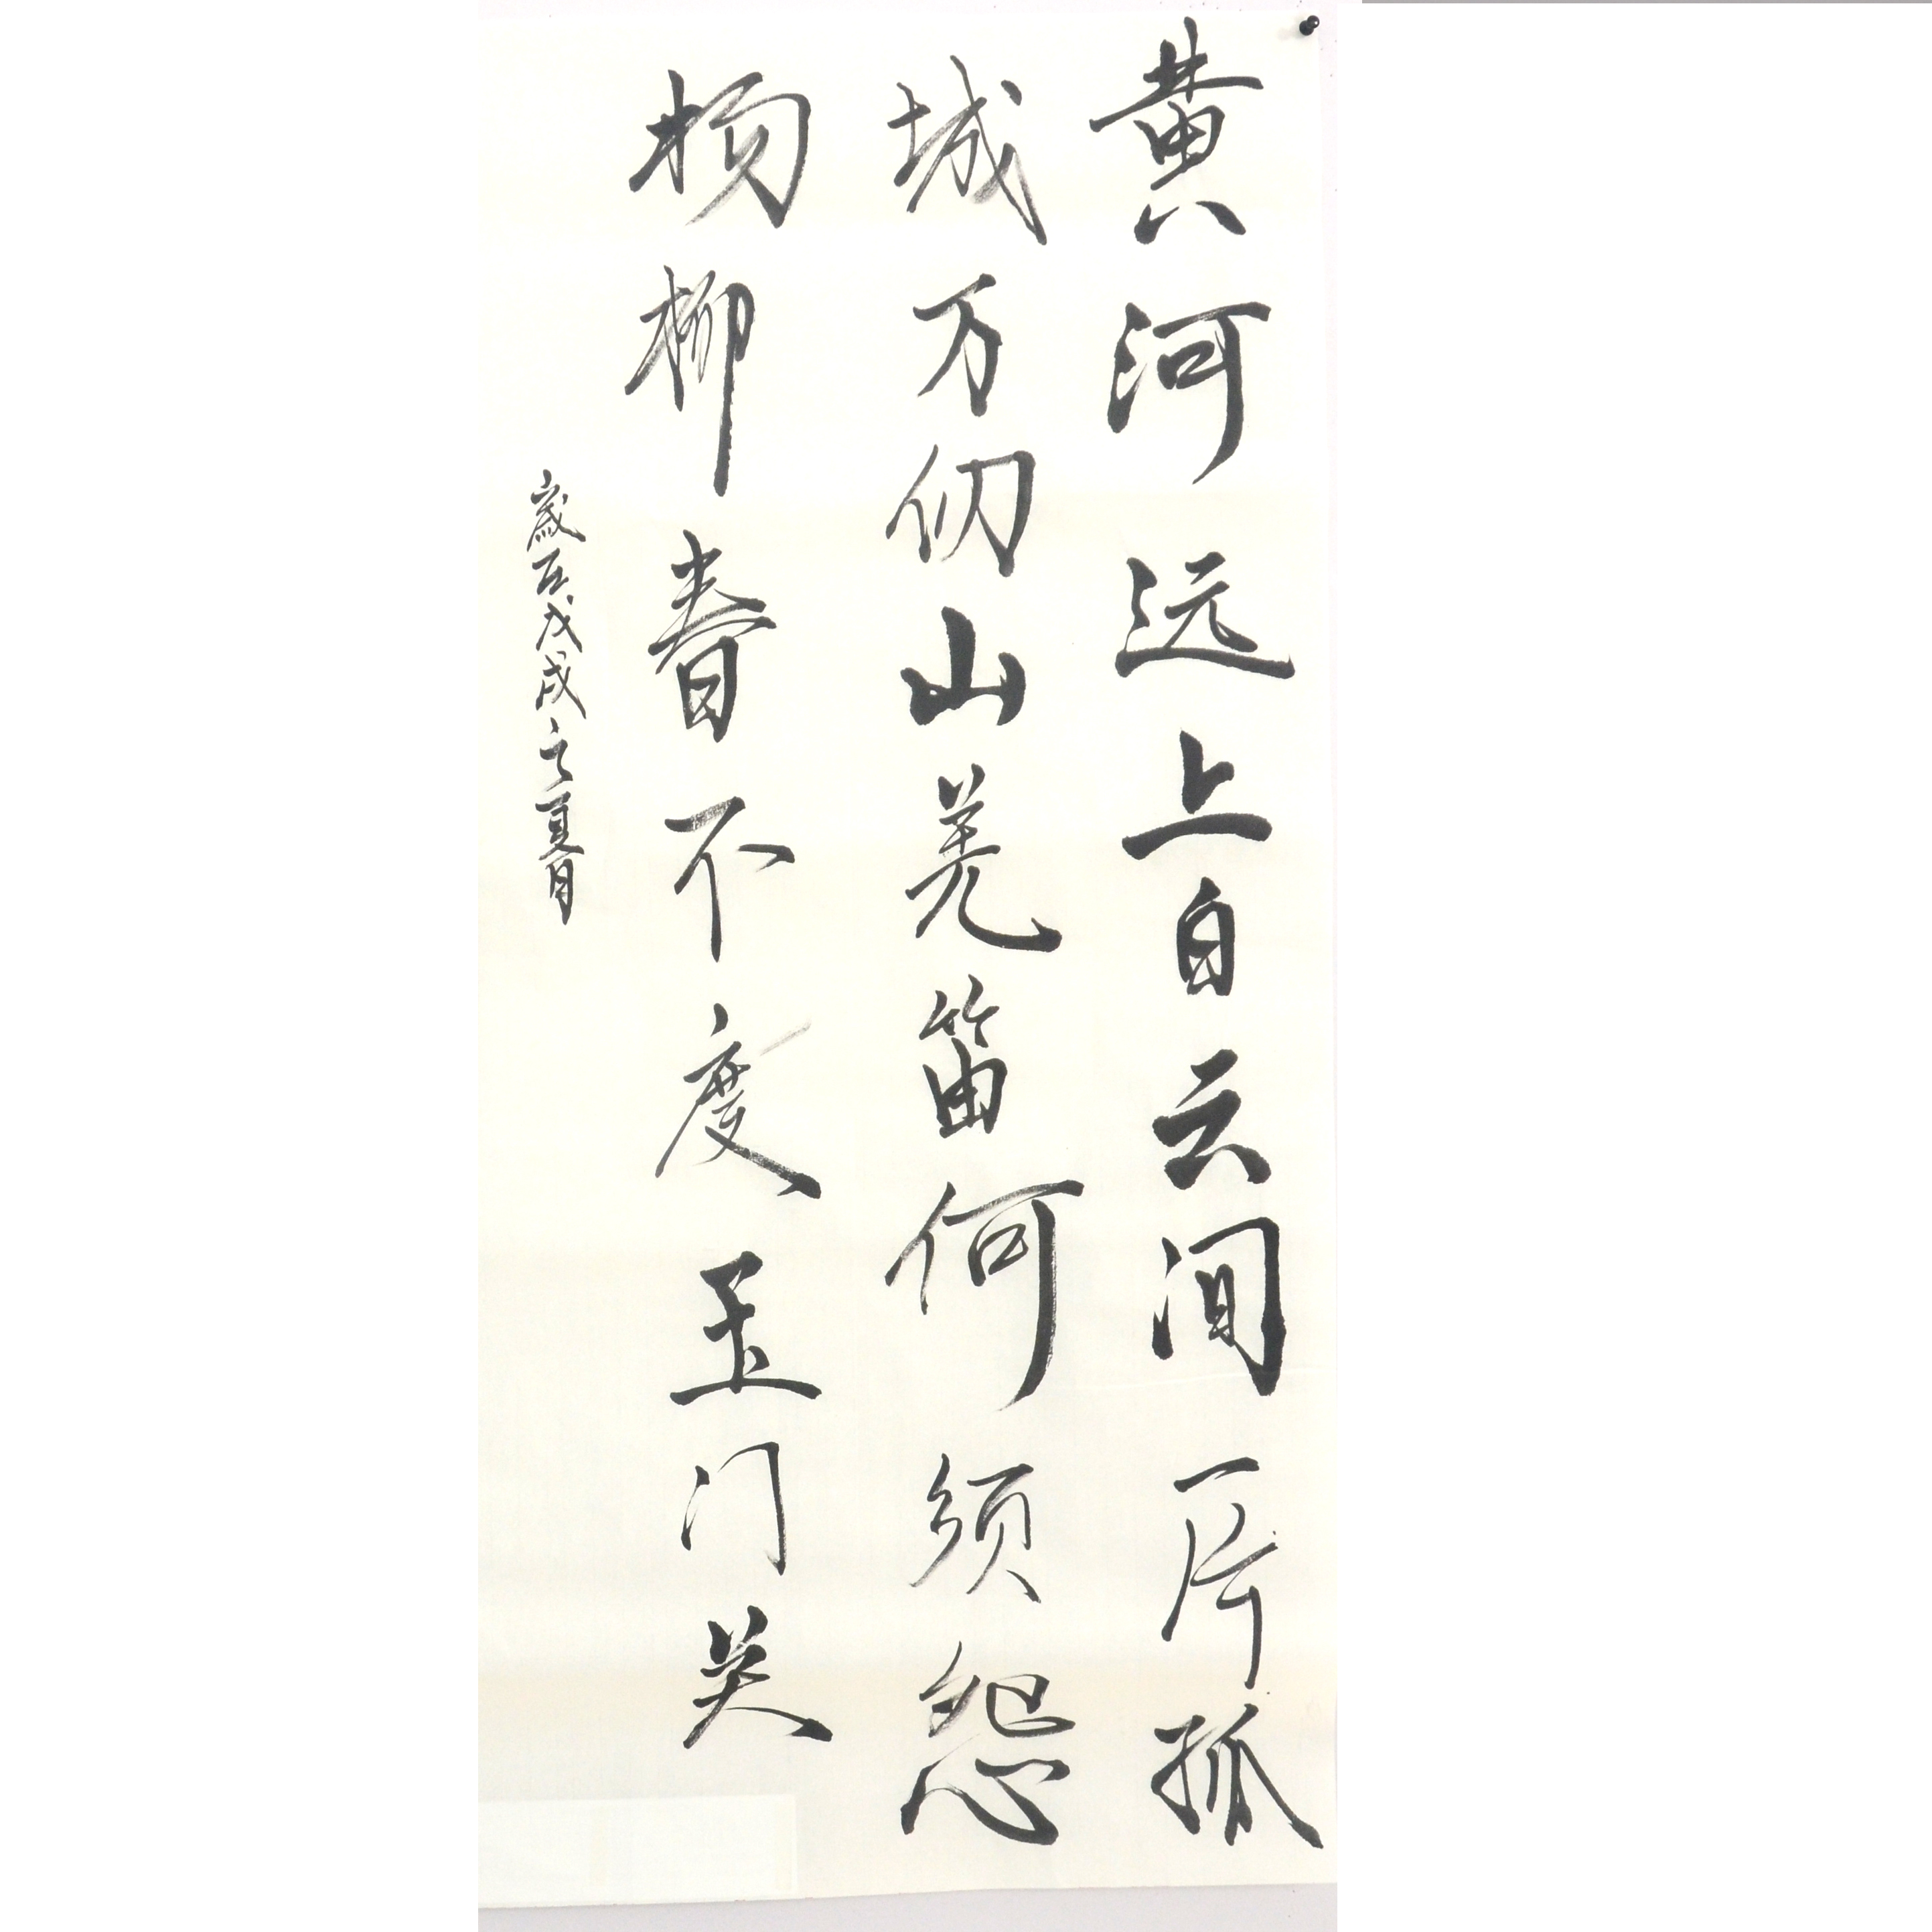 黄河远上白云间一片孤
城万仞山羌笛何须怨
杨柳春不度玉门关
歲在戊戌之夏月